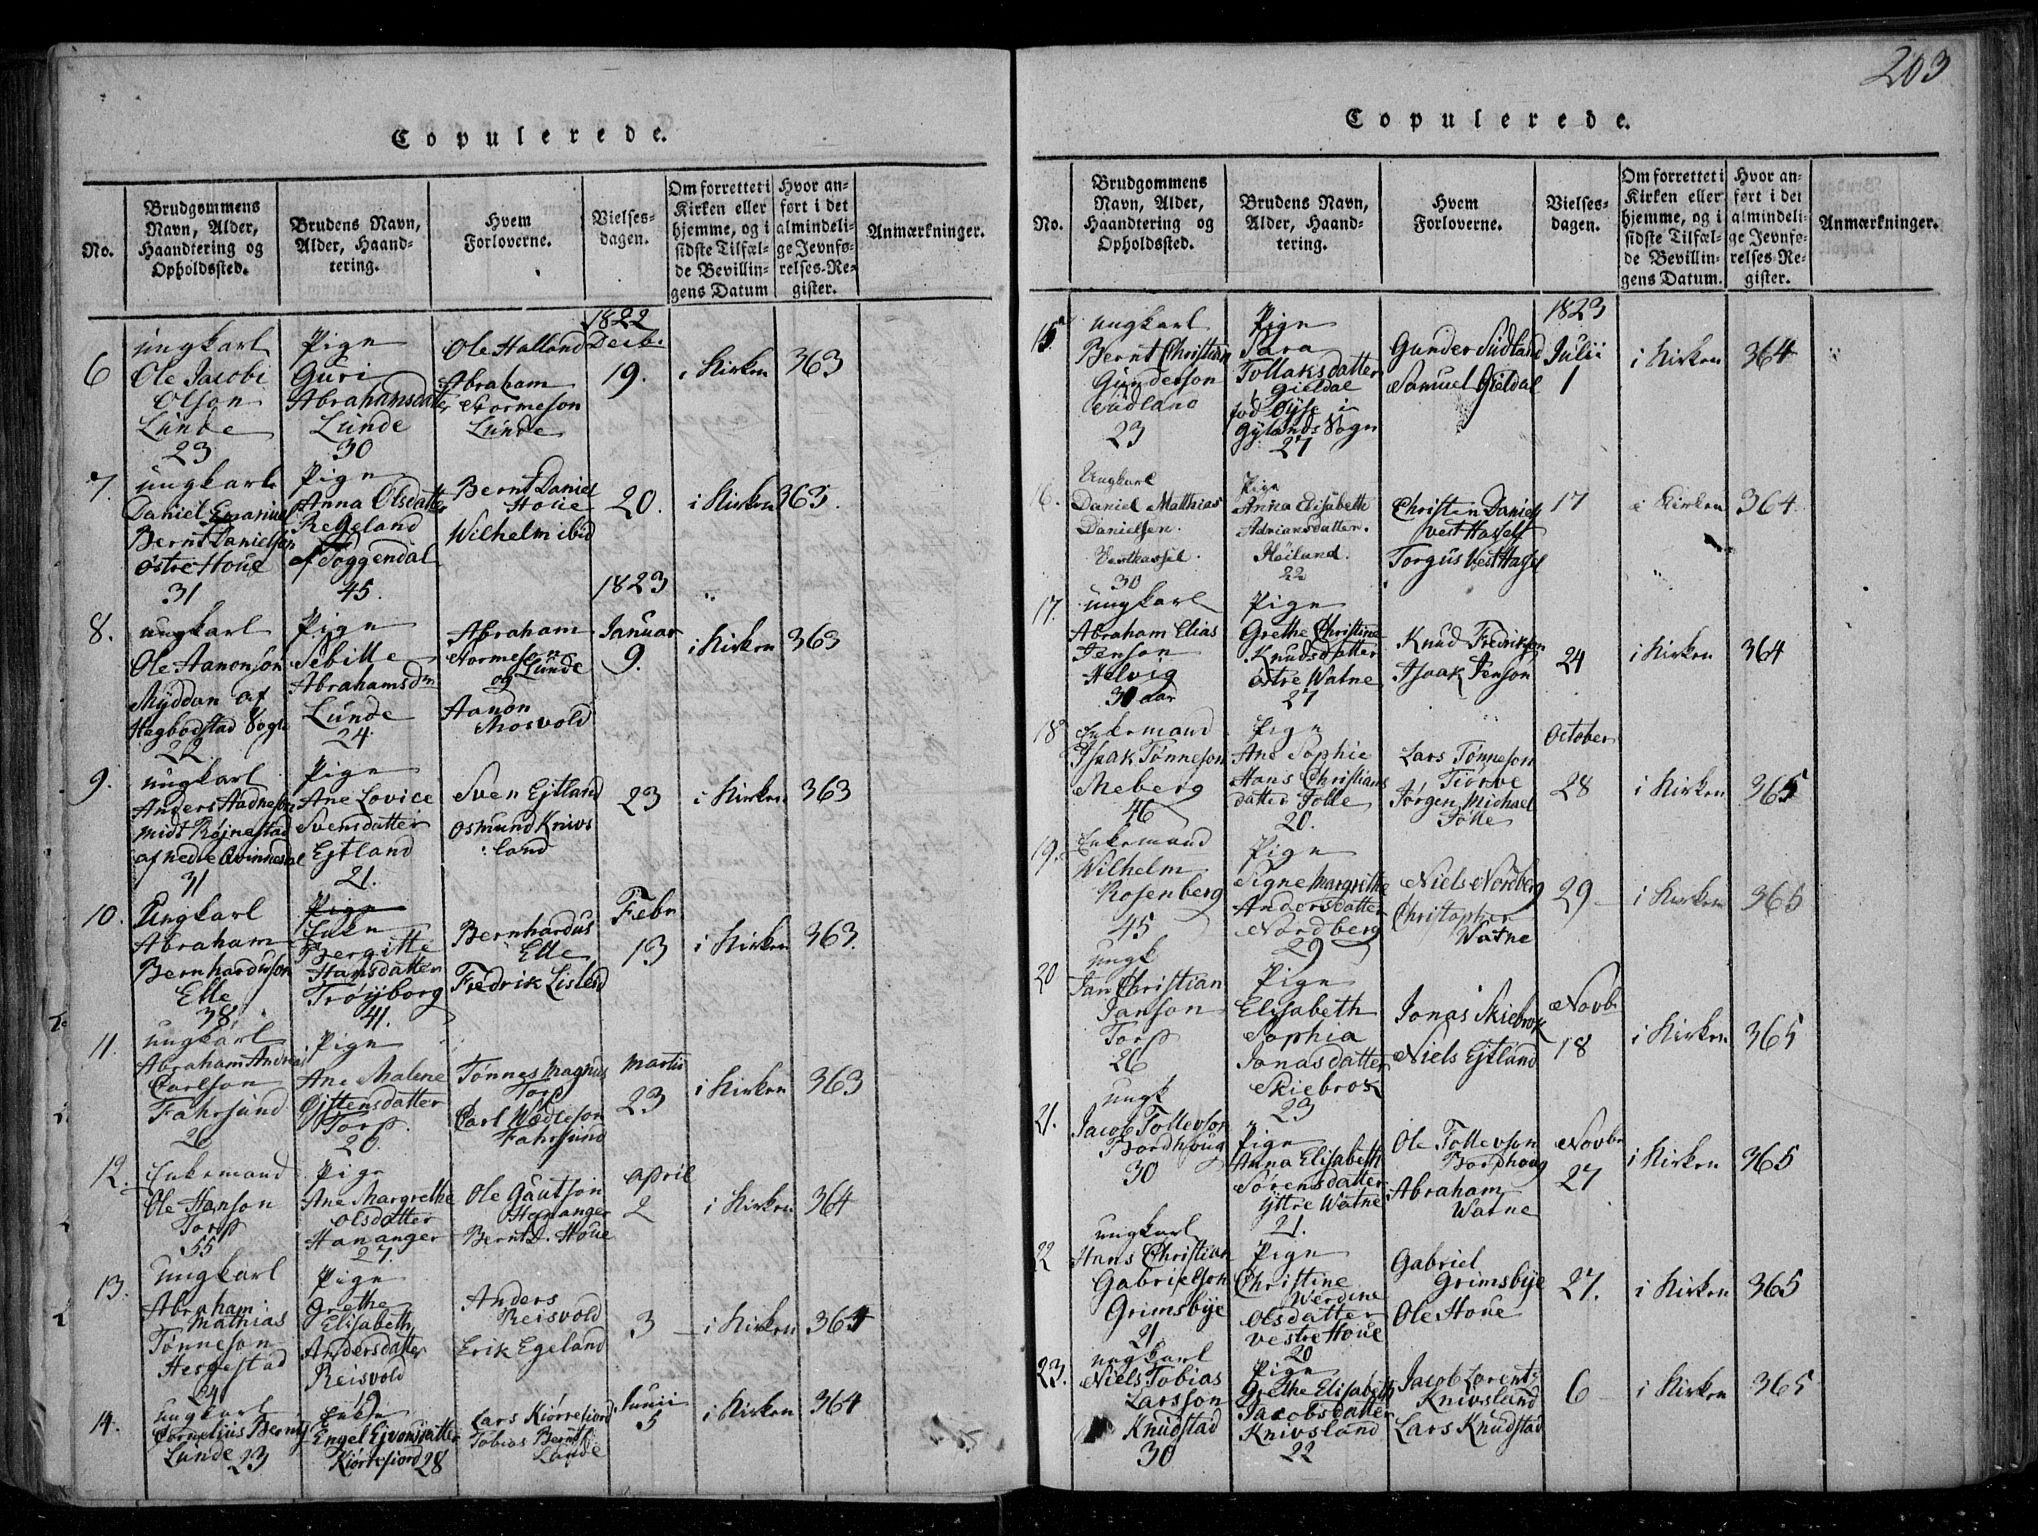 203
Copulerede.
No.
Brudgommens
Navn, Alder,
Haandtering og
Opholdssted.
Brudens Navn,
Alder, Haand-
tering.
Hvem
Forloverne.
Vielses-
dagen.
Om forrettet i
Kirken eller
hjemme, og i
sidste Tilfæl-
de Bevillin-
gens Datum
Hvor an-
ført i det
almindeli-
ge Jevnfø-
relses-Re-
gister.
Anmærkninger.
6
ungkarl
Ole Jacobi
Olson
Lunde
23
Pige
Guri
Abrahamsdatter
Lunde
30
Ole Halland
Abraham
Stormeson
Lunde
1822
Decbr.
19.
i Kirken
363
7.
ungkarl
Daniel Emanuel
Bernt Danielson
østre Houe
31
Pige
Anna Olsdatter
Regeland
af Soggendal
45.
Bernt Daniel
Houe
Wilhelm ibid
20.
i Kirken
363.
8.
ungkarl
Ole Aanonson
Myddan af
Hægbodstad Sogn
22
Pige
Sebille
Abrahamsdtr
Lunde
24.
Abraham
Stormeson
og Lunde
Aanon
Mosvold
1823
Januar
9.
i Kirken
363
9.
ungkarl
Anders Aadneson
midt Røjnestad
af nedre Qvinnesdal
31
Pige
Ane Lovice
Svensdatter
Ejtland
21.
Sven Ejtland
Osmund Knivs
land
23
i Kirken
363
10.
Ungkarl
Abraham
Bernhardusson
Elle
38
Pige
Enke
Bergitte
Hansdatter
Trøyborg
41.
Bernhardus
Elle
Fredrik Listed
Febr
13
i Kirken
363.
11.
ungkarl
Abraham Andreas
Carlson
Fahrsund
26
Pige
Ane Malene
Ojstensdatter
Torp.
20.
Tønnes Magnus
Torp
Carl Wedleson
Fahrsund
Martii
23
i Kirken
363
12.
Enkemand
Ole Hanson
Torp
55
Pige
Ane Margrethe
Olsdatter
Hananger
27.
Ole Gautson
Hananger
Bernt D. Houe
April
2
i Kirken
364
13.
ungkarl
Abraham
Mathias
Tønneson
Hesgestad
24
Pige
Grethe
Elisabeth
Andersdatter
Reisvold
19
Anders
Reisvold
Erik Egeland
3
i Kirken
364
14.
ungkarl
Cornelius Berntsen
Lunde 23
Enke
Engel Ejvondsdatter
Kiørrefiord 28
Lars Kiørrefiord
Tobias Berntsen
Lunde
Junii
5
i Kirken
364
Copulerede.
No.
Brudgommens
Navn, Alder,
Haandtering og
Opholdssted.
Brudens Navn,
Alder, Haand-
tering.
Hvem
Forloverne.
Vielses-
dagen.
Om forrettet i
Kirken eller
hjemme, og i
sidste Tilfæl-
de Bevillin-
gens Datum.
Hvor an-
ført i det
almindeli-
ge Jevnfø-
relses-Re-
gister.
Anmærkninger.
15.
ungkarl
Bernt Christian
Gunderson
Sudland
23
Pige
Sara
Tollaksdatter
Gieldal
fød Øyse i
Gylands Sogn
27
Gunder Sudland
Samuel Gieldal
1823
Julii
1
i Kirken
364
16.
Ungkarl
Daniel Matthias
Danielsen.
Vesthassel.
30
Pige
Anna Elisabeth
Adriansdatter.
Høiland.
22
Christen Daniels
vest Hassel
Torgus Vest Hassel
17
i Kirken
364
17.
ungkarl
Abraham Elias
Jenson
Helvig
30 aar
Pige
Grethe Christine
Knudsdatter
østre Watne
27
Knud Fredriksen
Isaak Jenson
24
i Kirken
364
18
Enkemand
Isaak Tønneson
Meberg
46
Pige
Ane Sophie
Hans Christians
datter Jølle
20.
Lars Tønneson
Tiørve
Jørgen Michael
Jølle
October
28
i Kirken
365
19.
Enkemand
Wilhelm
Rosenberg
45
Pige
Signe Margrethe
Andersdatter
Nordberg
29
Niels Nordberg
Christopher
Watne
29
i Kirken
365
20
ungk
Jan Christian
Janson
Torp
26
Pige
Elisabeth
Sophia
Jonasdatter
Skiebrok
23
Jonas Skiebrok
Niels Ejtland
Novbr
18
i Kirken
365
21.
ungk
Jacob Tollevson
Bordhoug
30
Pige
Anna Elisabeth
Sørensdatter
Yttre Watne
21.
Ole Tollevson
Borphoug
Abraham
Watne
Novbr
27
i Kirken
365
22
ungkarl
Hans Christian
Gabrielson
Grimsbye
21
Pige
Christine
Werdine
Olsdatter
vestre Houe
20
Gabriel
Grimsbye
Ole Houe
27.
i Kirken
365
23.
ungkarl
Niels Tobias
Larsson
Knudstad
30
Pige
Grethe Elisabeth
Jacobsdatter
Knivsland
22
Jacob Lorents
Knivsland
Lars Knudstad
6
i Kirken
365